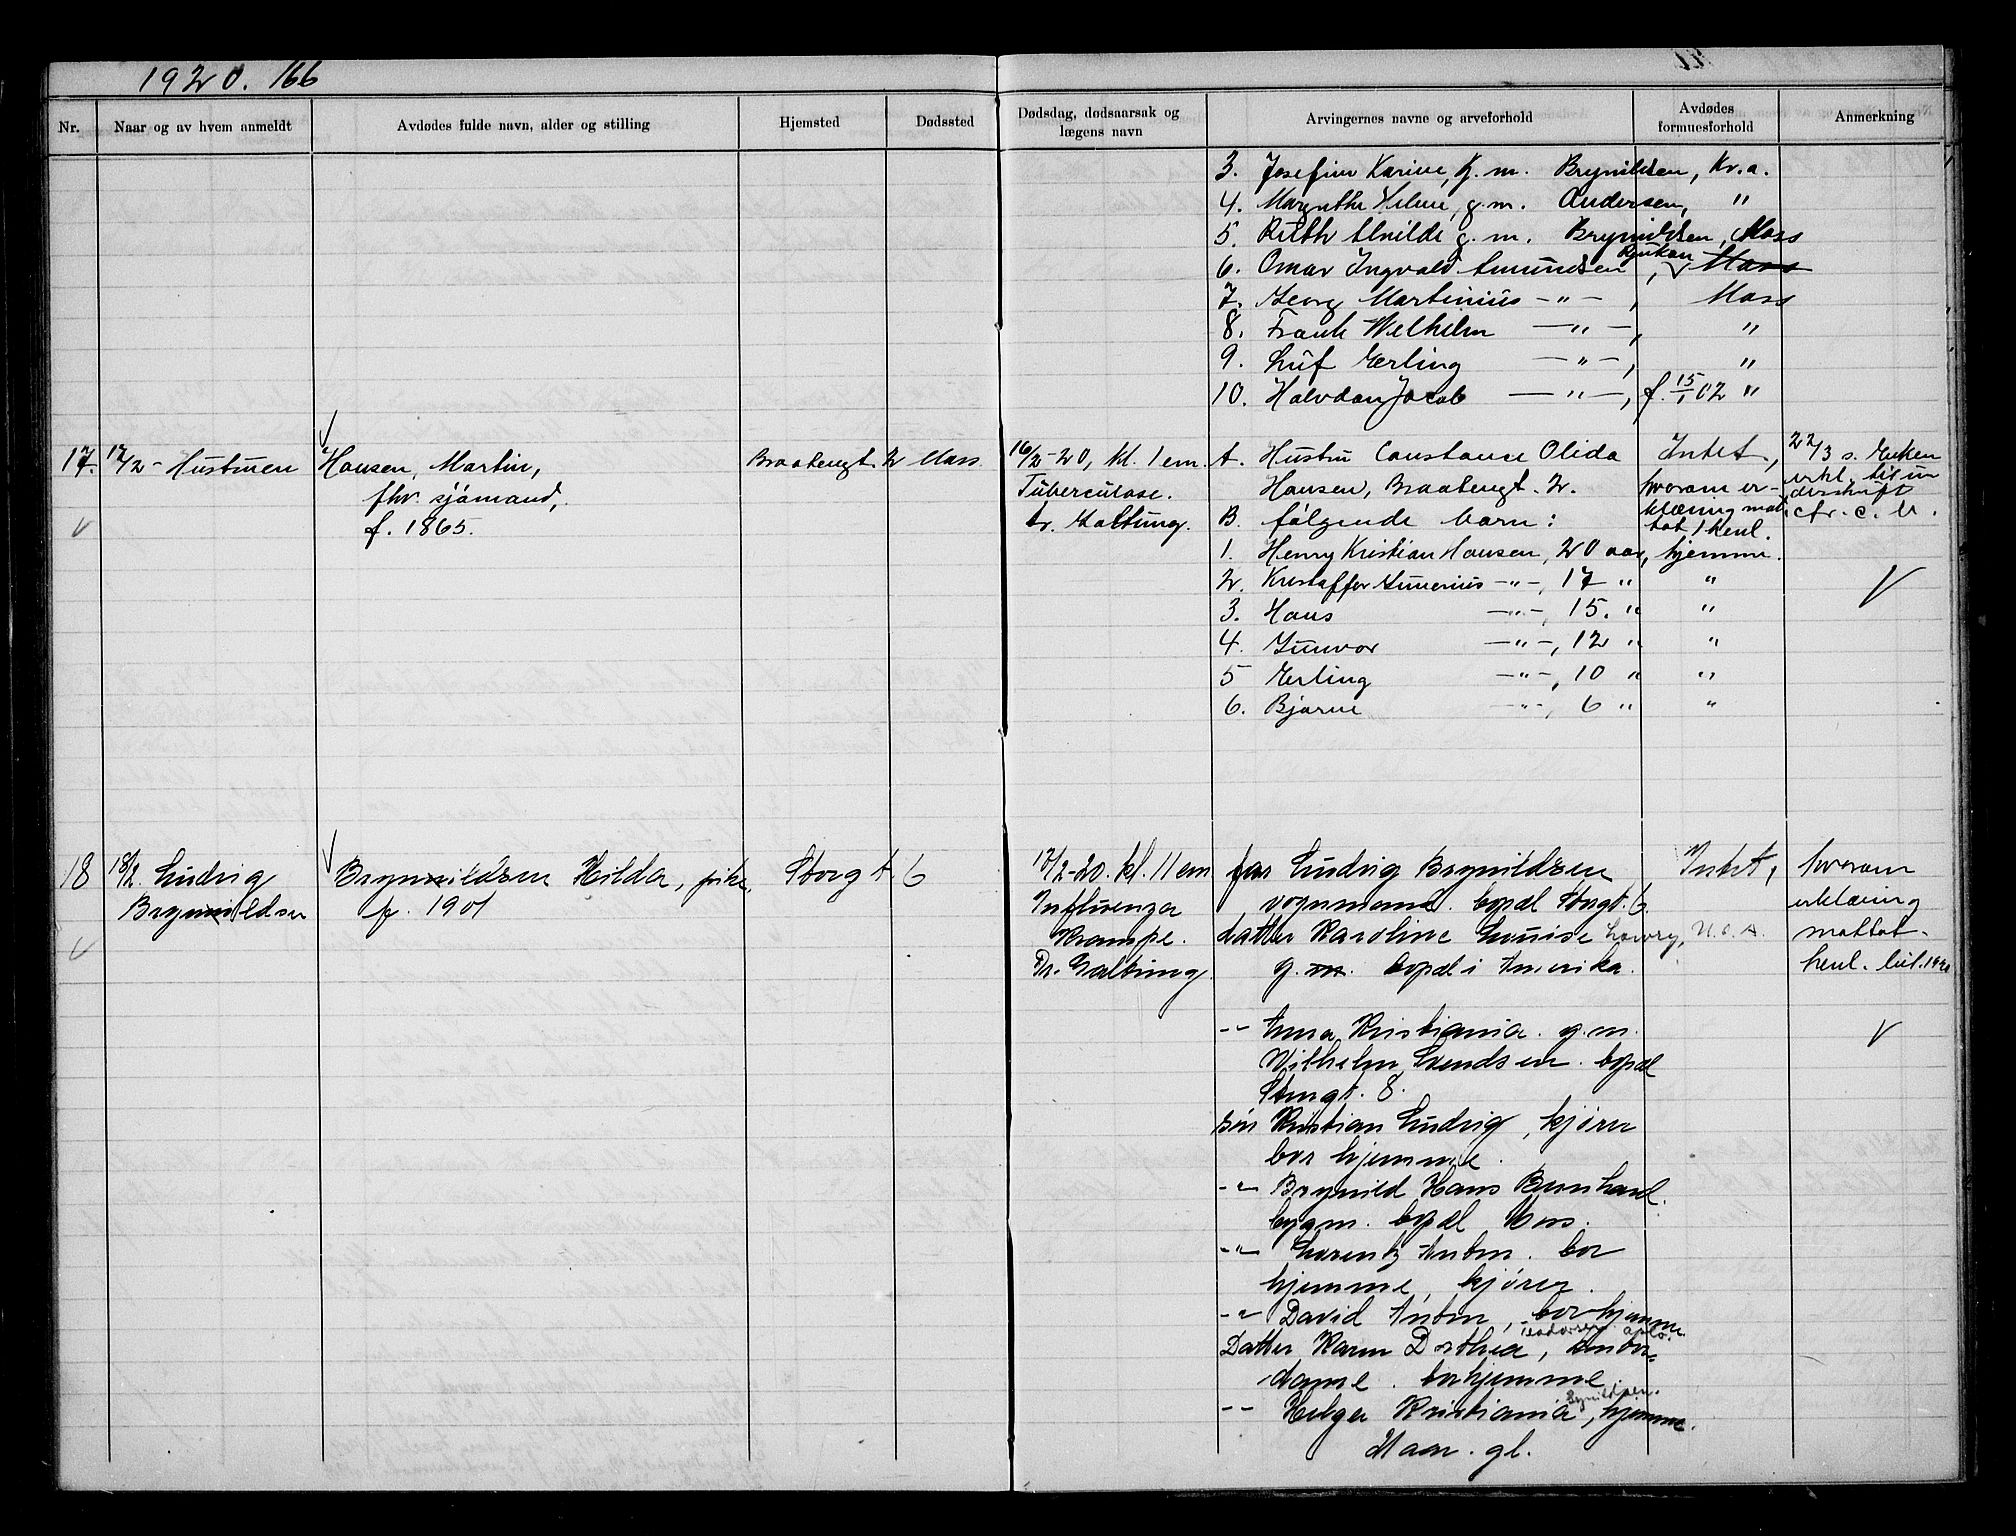 1920. 166
Nr.
Naar og av hvem anmeldt
Avdødes fulde navn, alder og stilling
Hjemsted
Dødssted
Dødsdag, dødsaarsak og
lægens navn
Arvingernes navne og arveforhold
Avdødes
formuesforhold
Anmerkning
3. Josefine Karine, g. m. Brynildsen, Kr.a.
4. Margrethe Helene, g. m. Andersen, "
5. Ruth Alvilde g. m. Brynildsen, Moss
Rjukan
6. Omar Ingvald Amundsen, Moss
7. Georg Martinius -"-, Moss
8. Frank Wilhelm -"-, "
9. Leif Erling -"-, "
10. Halvdan Jacob -"-, f. 15/1 02 "
17. 17/2 - Hustruen
Hansen, Martin,
fhv. sjömand,
f. 1865.
Braatengt. 2 Moss.
16/2-20, kl. 1 em.
Tuberculose.
Dr. Galtung.
A. Hustru Constance Olida
Hansen, Braatengt. 2.
B. følgende barn:
1. Henry Kristian Hansen, 20 aar, hjemme.
2. Kristoffer Gunerius -"-, 17 " "
3. Hans -"-, 15. " "
4. Gunvor -"-, 12 " "
5 Erling -"-, 10 " "
6. Bjarne -"-, 6 " "
Intet,
hvorom er-
klæring mot-
tat, 1 henl.
22/3 s. Enken
erkl. til un
derskrift
18 18/2. Ludvig
Brynildsen
Brynildsen Hilda, pike,
f. 1901
Storgt. 6
17/2-20. kl. 11 em
Influenza
Krampe.
Dr. Galtung.
far Ludvig Brynildsen
vognmand. bopæl Storgt. 6.
datter Karoline Louise Lowry, U.S.A.
g. m. bopæl i Amerika.
-"- Anna Kristiania. g. m.
Vilhelm Svendsen. bopæl
Storgt. 8.
søn Kristian Ludvig, kjører
bor hjemme.
-"- Brynild Hans Bernhard.
bygm. bopæl Moss.
-"- Lorentz Anton. bor
hjemme, kjører.
-"- David Anton, bor hjemme
Datter Karen Dorthea, kontor-
dame. bor hjemme.
Brynildsen.
-"- Helga Kristiania, hjemme.
Maan. gl.
Intet,
hvorom
erklæring
mottat.
henl.